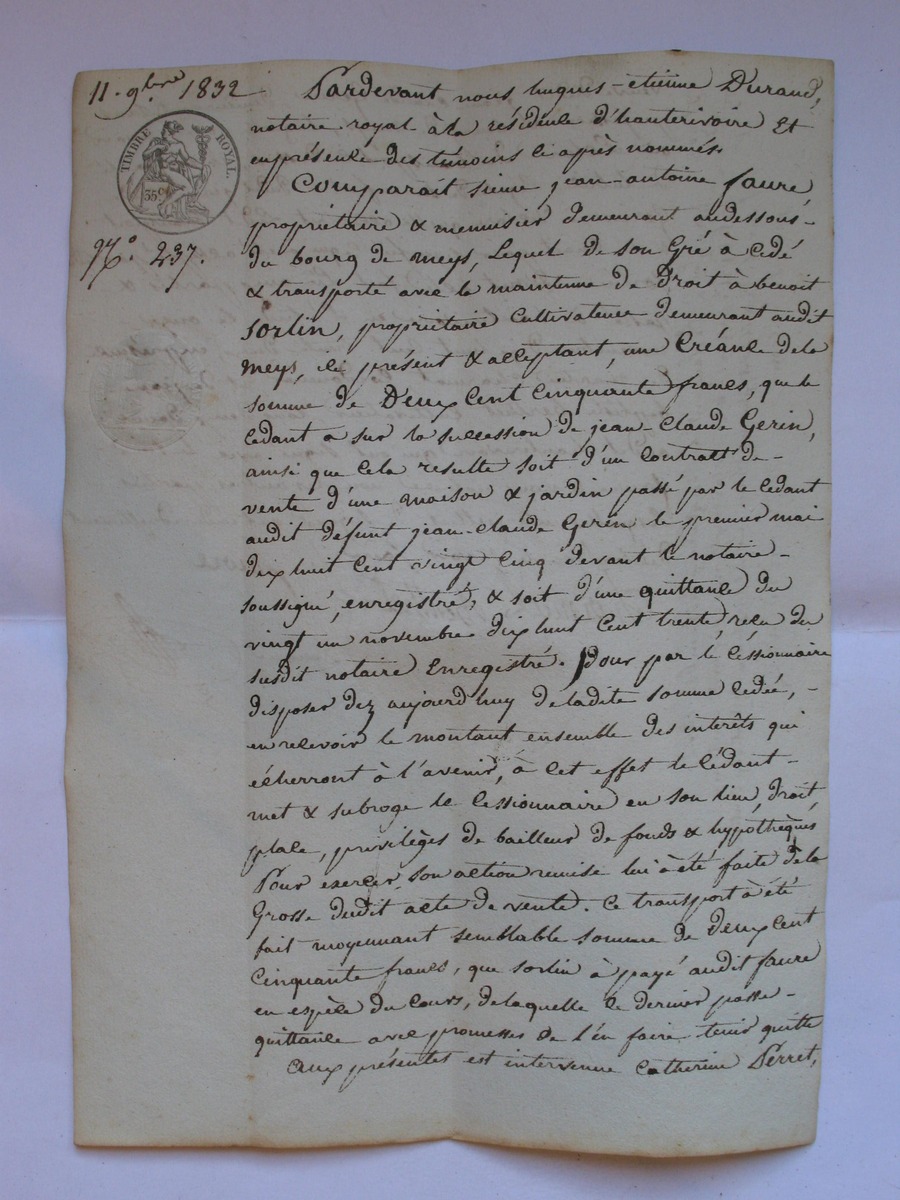 11. 9bre 1832
TIMBRE ROYAL.
35 c
N.° 237.
Pardevant nous hugues-etienne Durand,
notaire royal à la résidence d'hauterivoire Et
enprésence des témoins ci après nommés.
Comparait sieur jean-antoine faure
propriétaire & menuisier demeurant audessous-
du bourg de meys, Lequel de son Gré à cédé
& transporté avec la maintenue de Droit à benoit
Sorlin, propriétaire Cultivateur demeurant audit
Meys, ici présent & acceptant, une Créance dela
somme de Deux Cent Cinquante francs, que le
Cédant a sur la succession de jean-Claude Gerin,
ainsi que cela resulte soit d'un Contratt de-
vente d'une maison & jardin passé par le cédant
audit défunt jean-claude Gerin le premier mai
dix huit Cent vingt Cinq devant le notaire-
soussigné, enregistré, & soit d'une quittance du
vingt un novembre dix huit Cent trente recu du
susdit notaire Enregistré. Pour par le Cessionnaire
disposer dez aujourd'huy deladite somme cédée,-
en recevoir le montant ensemble des interêts qui
écherront à l'avenir, à cet effet le Cédant-
met & subroge le Cessionnaire en son lieu, droit,
place, privilèges de bailleur de fonds & hypothèques
Pour exercer son action remise lui à été faite dela
Grosse dudit acte de vente. Ce transport à été
fait moyennant semblable somme de Deux Cent
Cinquante francs, que Sorlin à payé audit faure
en espèce du Cours, delaquelle ce dernier passe-
quittance avec promesses de l'en faire tenir quitte
Aux présentes est intervenue Catherine Perret,